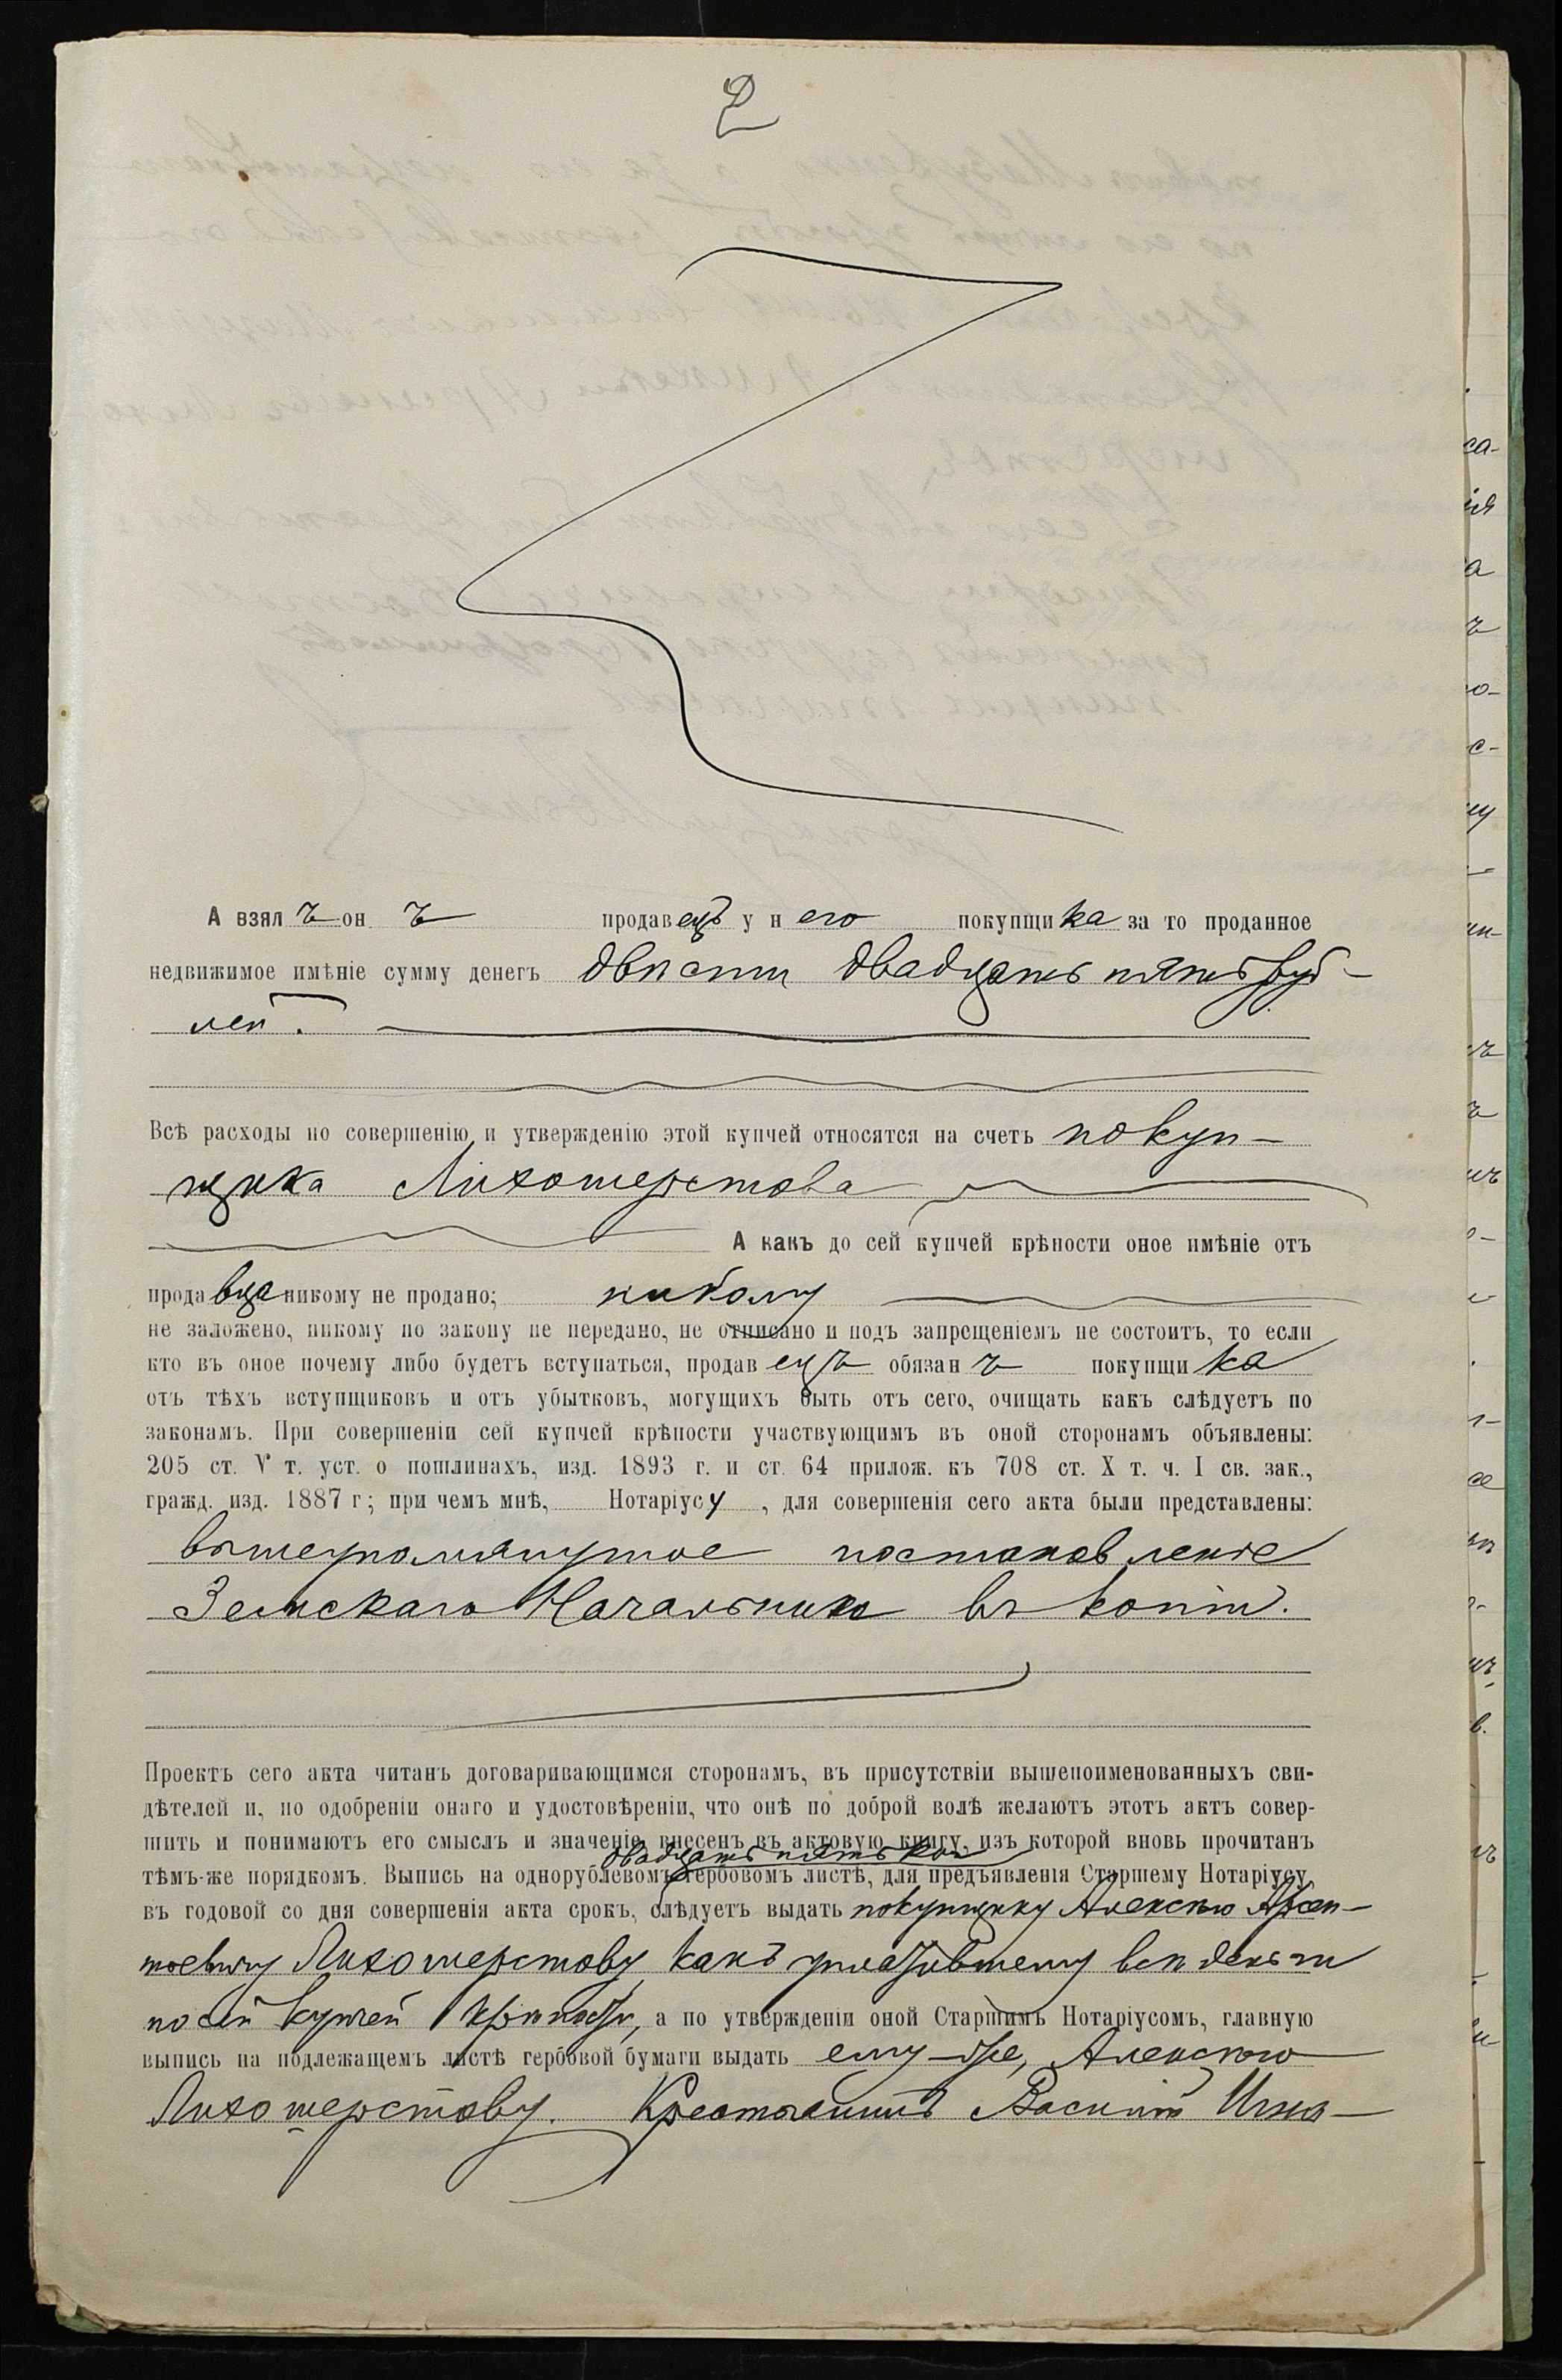 2
А взялъ онъ продавецъ у него покупщика за то проданное
недвижимое имѣніе сумму денегъ двѣсти двадцать пять руб-
лей.
Всѣ расходы по совершенію и утвержденію этой купчей относятся на счетъ покуп-
щика Лихошерстова
А какъ до сей купчей крѣпости оное имѣніе отъ
продавца никому не продано; никому
не заложено, никому по закону не передано, не отписано и подъ запрещеніемъ не состоитъ, то если
кто въ оное почему либо будетъ вступаться, продавецъ обязанъ покупщика
отъ тѣхъ вступщиковъ и отъ убытковъ, могущихъ быть отъ сего, очищать какъ слѣдуетъ по
законамъ. При совершеніи сей купчей крѣпости участвующимъ въ оной сторонамъ объявлены:
205 ст. V т. уст. о пошлинахъ, изд. 1893 г. и ст. 64 прилож. къ 708 ст. X т. ч. I св. зак.,
гражд. изд. 1887 г; при чемъ мнѣ, Нотаріусу, для совершенія сего акта были представлены:
вышеупомянутое постановленіе
Земскаго Начальника въ копіи.
Проектъ сего акта читанъ договаривающимся сторонамъ, въ присутствіи вышепоименованныхъ сви-
дѣтелей и, по одобреніи онаго и удостовѣреніи, что онѣ по доброй волѣ желаютъ этотъ актъ совер-
шить и понимаютъ его смыслъ и значеніе, внесенъ въ актовую книгу, изъ которой вновь прочитанъ
двадцать пять коп
тѣмъ-же порядкомъ. Выпись на однорублевомъ гербовомъ листѣ, для предъявленія Старшему Нотаріусу,
въ годовой со дня совершенія акта срокъ, слѣдуетъ выдать покупщику Алексѣю Арсен-
тьевичу Лихошерстову, какъ уплатившему всѣ деньги
по сей купчей крѣпости, а по утвержденіи оной Старшимъ Нотаріусомъ, главную
выпись на подлежащемъ листѣ гербовой бумаги выдать ему-же, Алексѣю
Лихошерстову. Крестьянинъ Василій Игна-